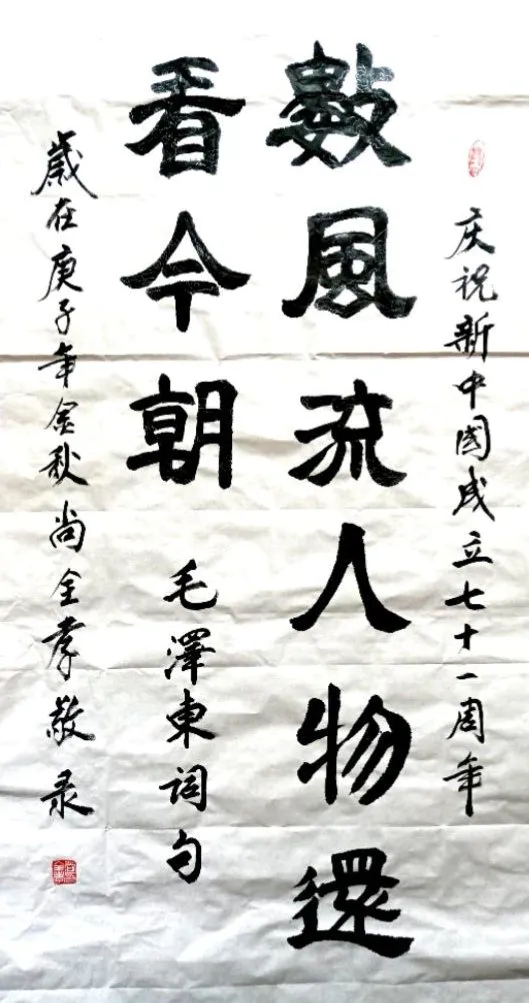 庆祝新中國成立七十一周年
數風流人物還
看今朝
毛澤東词句
歲在庚子年金秋尚全孝敬录